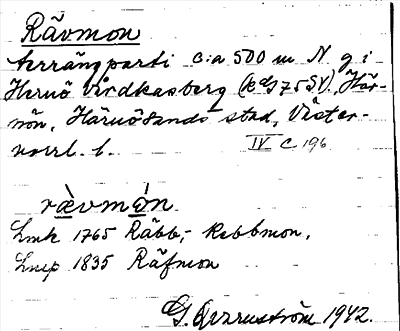 Rävmon
terrängparti c:a 500 m N g i
Hernö Vårdkasberg (kds 75 SV). Här-
nön, Härnösands stad, Väster-
norrl. l.
IV C 196
rævmón
Lmk 1765 Räbb-, Rebbmon,
Lmp 1835 Räfmon
G. 1942.